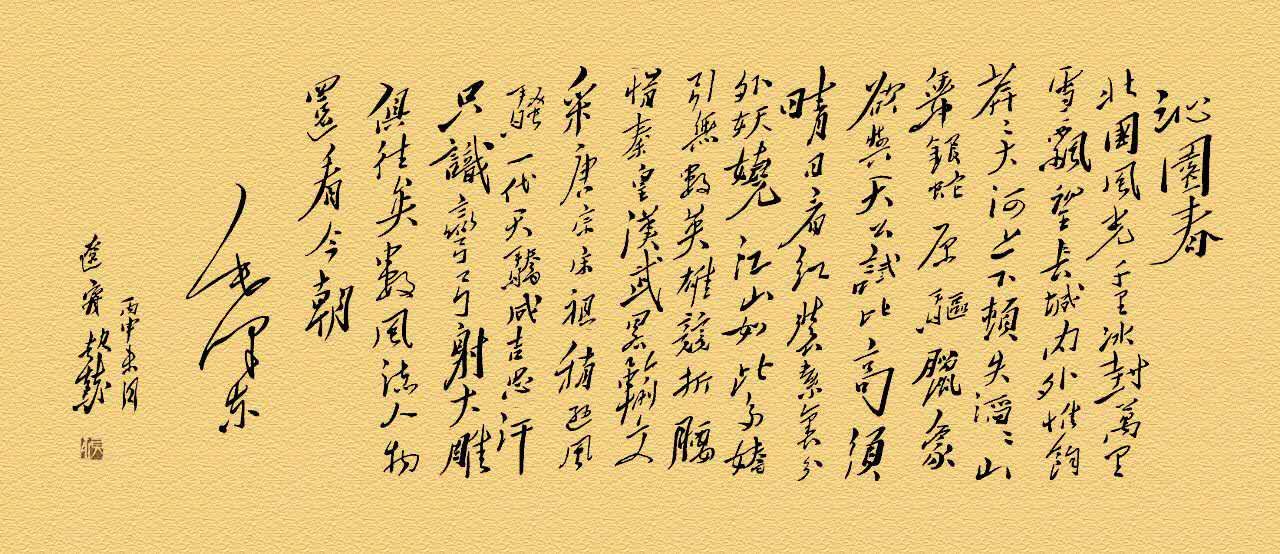 沁園春
北國風光千里冰封萬里
雪飄望長城内外惟餘
莽〻大河上下頓失滔〻山
舞銀蛇原驅臘象
欲與天公試比高須
晴日看紅裝素裹分
外妖嬈江山如此多嬌
引無數英雄競折腰
惜秦皇漢武略輸文
采唐宗宋祖稍遜風
騷一代天驕成吉思汗
只識彎弓射大雕
俱往矣數風流人物
還看今朝
毛澤東
丙申
遼寧